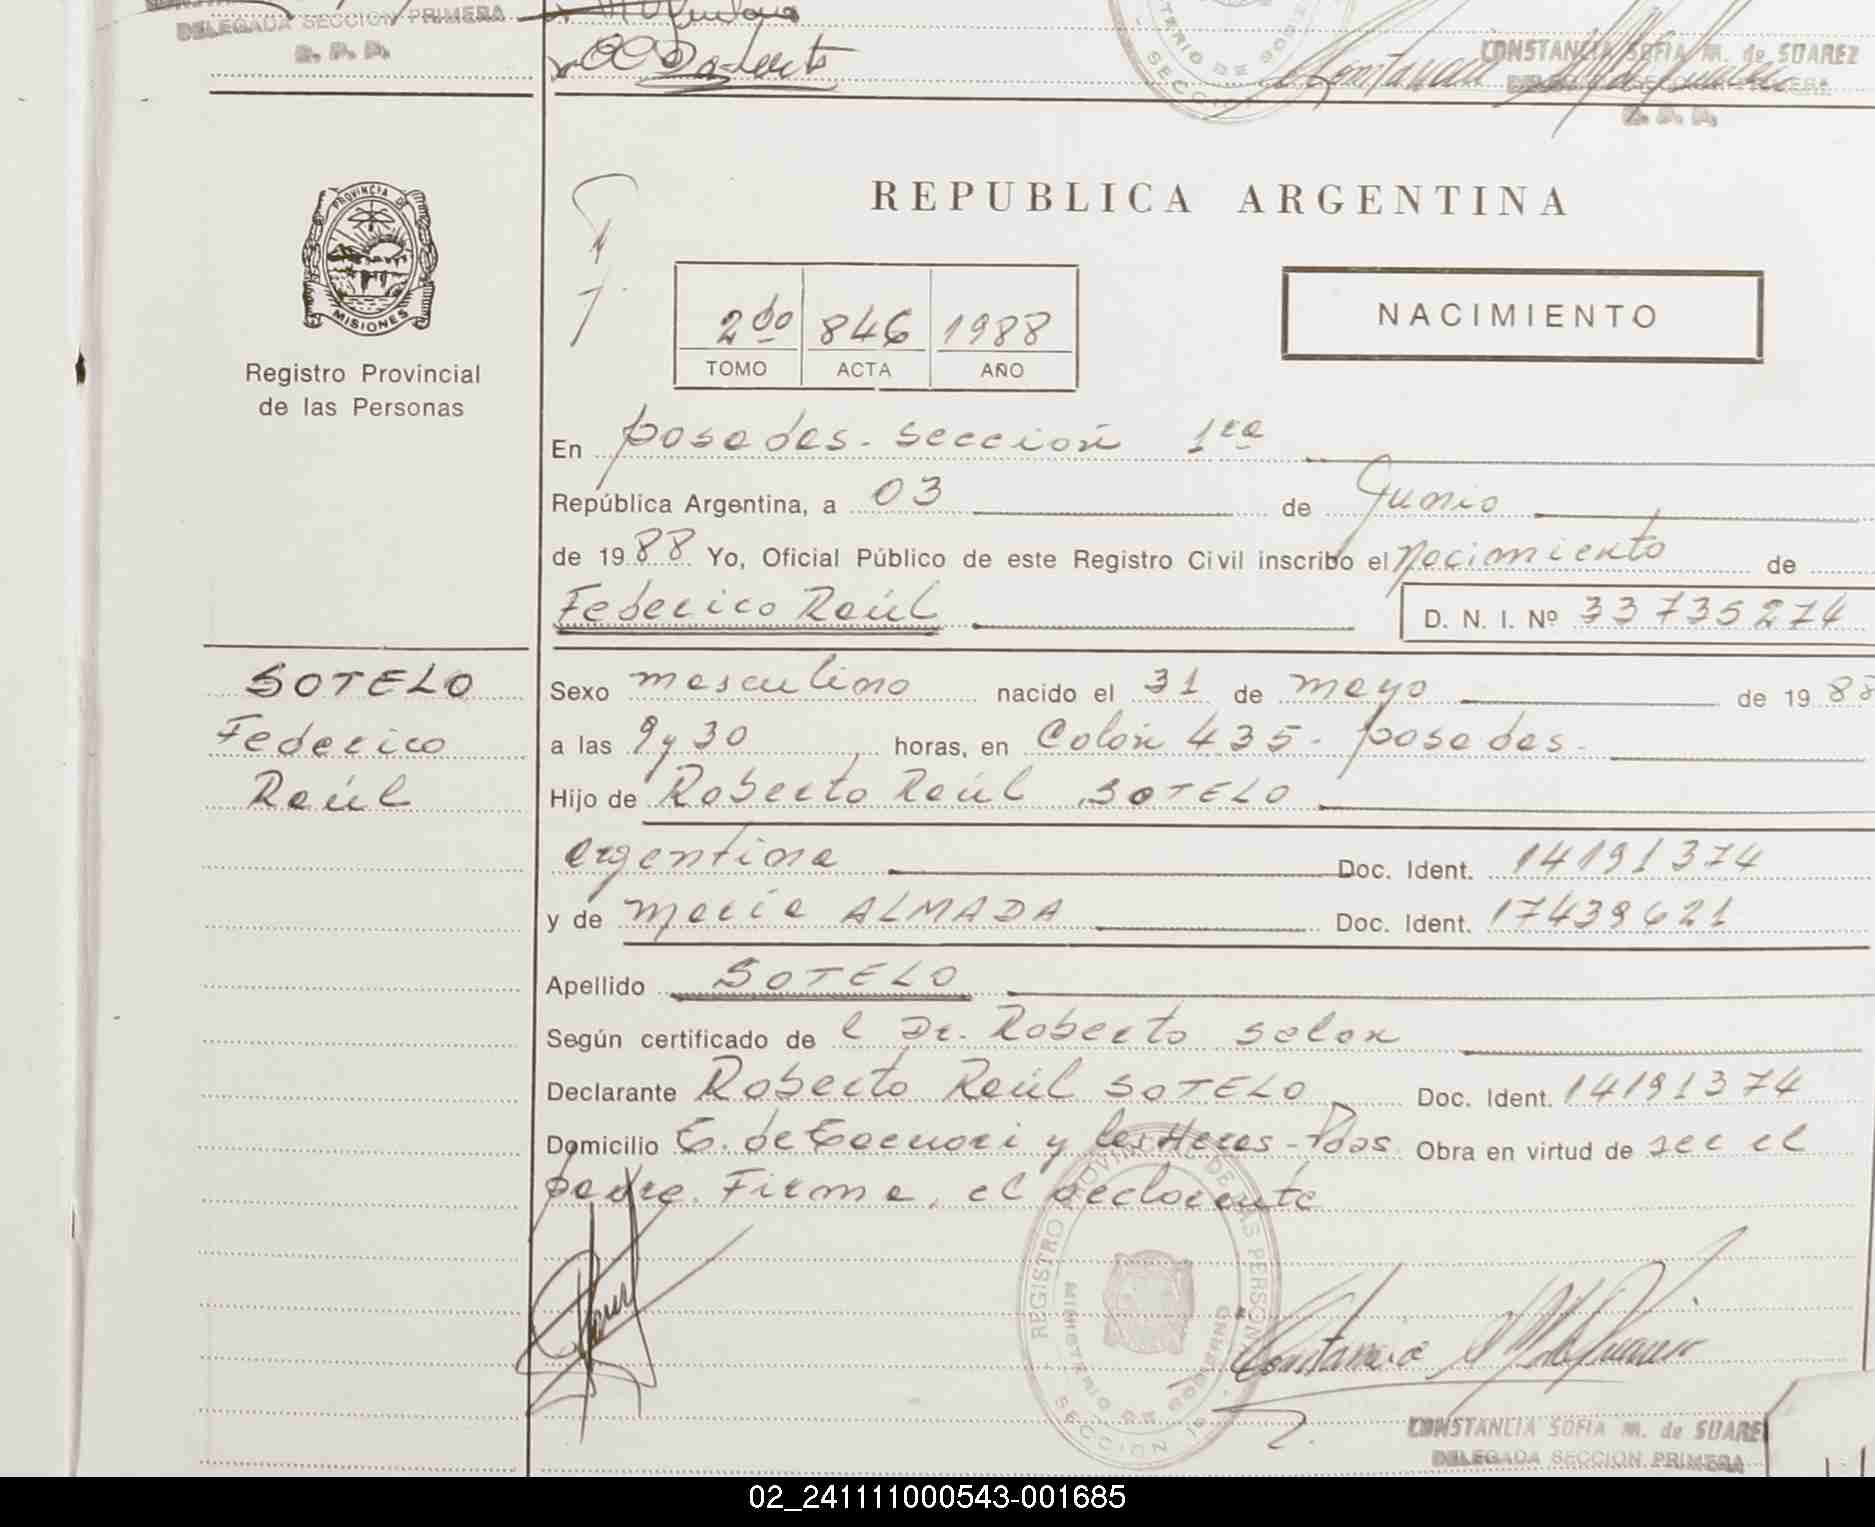 DELEGADA SECCION PRIMERA
R. P. P.
CONSTANCIA SOFIA M. de SUAREZ
DELEGADA SECCION PRIMERA
R. P. P.
PROVINCIA DE
MISIONES
Registro Provincial
de las Personas
REPUBLICA ARGENTINA
2do 846 1988
TOMO ACTA AÑO
NACIMIENTO
En Posadas. Sección 1ra
República Argentina, a 03 de Junio
de 1988 Yo, Oficial Público de este Registro Civil inscribo el Nacimiento de
Federico Raúl
D. N. I. Nº 33735274
SOTELO
Federico
Raúl
Sexo masculino nacido el 31 de mayo de 1988
a las 9 y 30 horas, en Colón 435 - Posadas.
Hijo de Roberto Raúl SOTELO
argentina Doc. Ident. 14191374
y de María ALMADA Doc. Ident. 17439621
Apellido SOTELO
Según certificado de l Dr. Roberto
Declarante Roberto Raúl SOTELO Doc. Ident. 14191374
Domicilio de y las Heras - Pdas. Obra en virtud de ser el
padre. Firma, el declarante
REGISTRO PROVINCIAL DE LAS PERSONAS
MINISTERIO DE GOBIERNO
SECCION 1ª
Constancia
CONSTANCIA SOFIA M. de SUARE
DELEGADA SECCION PRIMERA
02_241111000543-001685